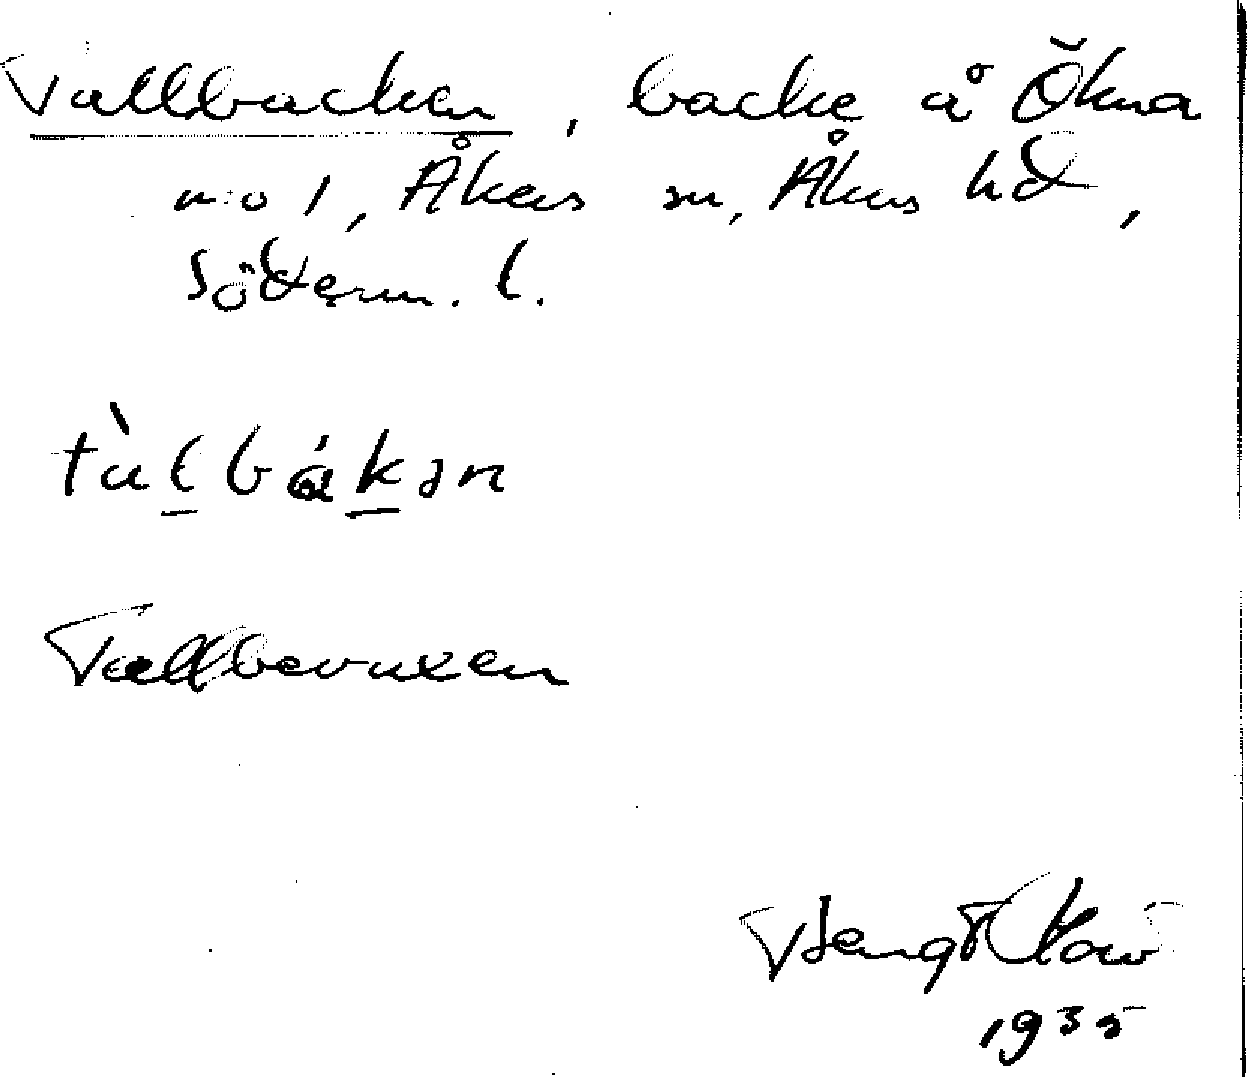 Tallbacken, backe å Ökna
n:o 1, Åkers sn, Åkers hd,
Söderm. l.
tàlbákən
Tallbevuxen
Bengt
1935